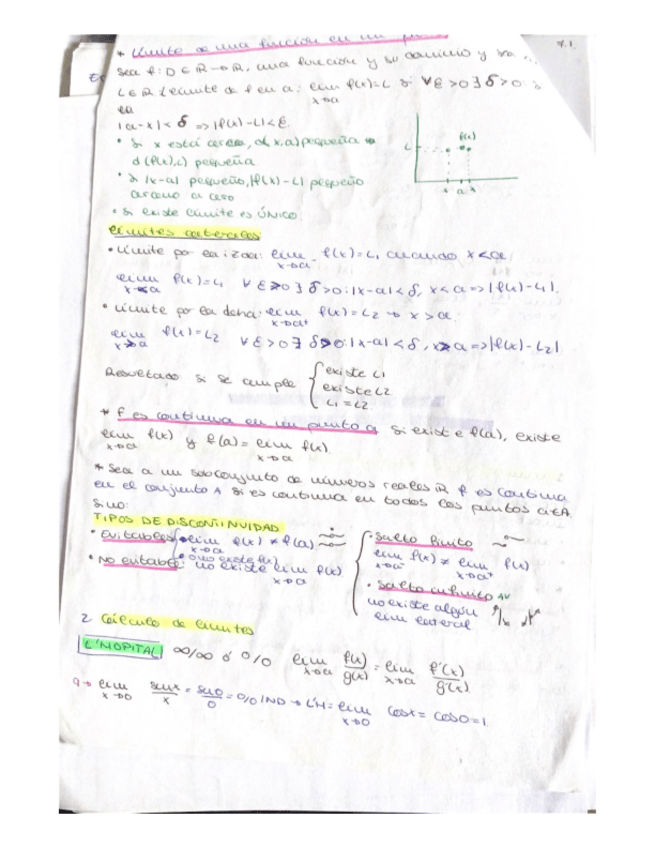 * Límite de una función en un
7.1.
Sea f: D ∈ ℝ → ℝ, una función y su dominio y sea
L ∈ ℝ límite de f en a: lim x→a f(x)=L si ∀ε>0 ∃ δ>0:
|a-x|<δ => |f(x)-L|<ε.
• Si x está cerca, d(x,a) pequeña
d(f(x),L) pequeña
L f(x)
x a x
• Si |x-a| pequeño, |f(x)-L| pequeño
cercano a cero
• Si existe límite es ÚNICO.
Límites laterales:
• Límite por la izda: lim x→a⁻ f(x)=L₁ cuando x<a
lim x→a f(x)=L₁ ∀ε>0 ∃ δ>0: |x-a|<δ, x<a => |f(x)-L₁|.
• Límite por la dcha: lim x→a⁺ f(x)=L₂ → x>a.
lim x→a f(x)=L₂ ∀ε>0 ∃ δ>0: |x-a|<δ, x>a => |f(x)-L₂|
Resultado si se cumple { existe L₁
existe L₂
L₁ = L₂
* f es continua en un punto a si existe f(a), existe
lim x→a f(x) y f(a) = lim x→a f(x).
* Sea A un subconjunto de números reales ℝ f es continua
en el conjunto A si es continua en todos los puntos a∈A.
Sino:
TIPOS DE DISCONTINUIDAD
• Evitables { • lim x→a f(x) ≠ f(a)
• o no existe f(x)
• No evitable: no existe lim x→a f(x)
{ • Salto finito
lim x→a⁻ f(x) ≠ lim x→a⁺ f(x)
• Salto infinito AV
no existe algún
lim lateral
2 Cálculo de límites
L'HOPITAL ∞/∞ ó 0/0 lim x→a f(x)/g(x) = lim x→a f'(x)/g'(x)
lim x→0 senx/x = sen0/0 = 0/0 IND → L'H = lim x→0 cosx = cos0 = 1.